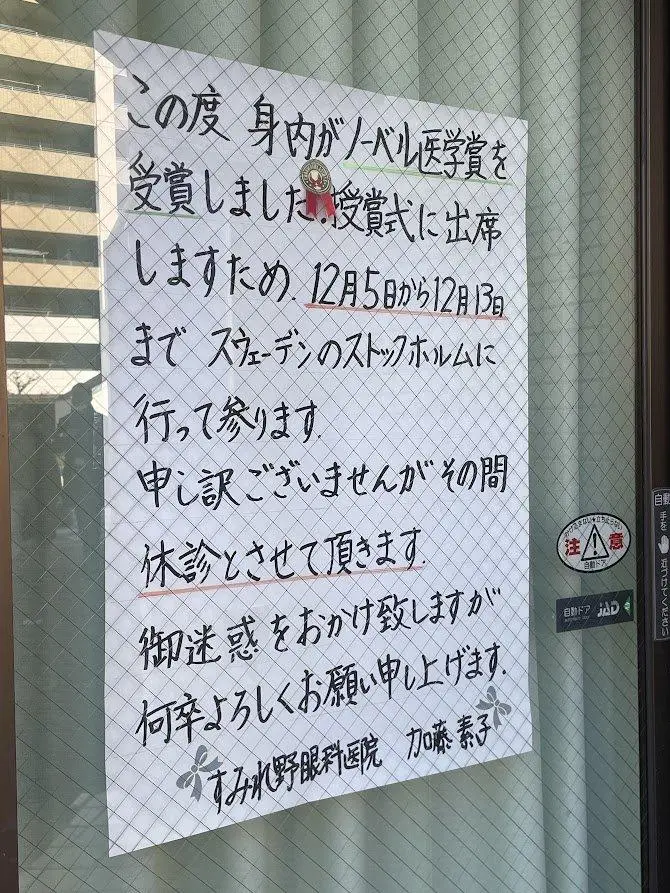 この度 身内がノーベル医学賞を
受賞しました.授賞式に出席
しますため、12月5日から12月13日
まで スウェーデンのストックホルムに
行って参ります.
申し訳ございませんがその間
休診とさせて頂きます.
御迷惑をおかけ致しますが
何卒よろしくお願い申し上げます.
すみれ野眼科医院 加藤素子
注意
自動ドア
自動ドア JAD
自動
手を近づけてください